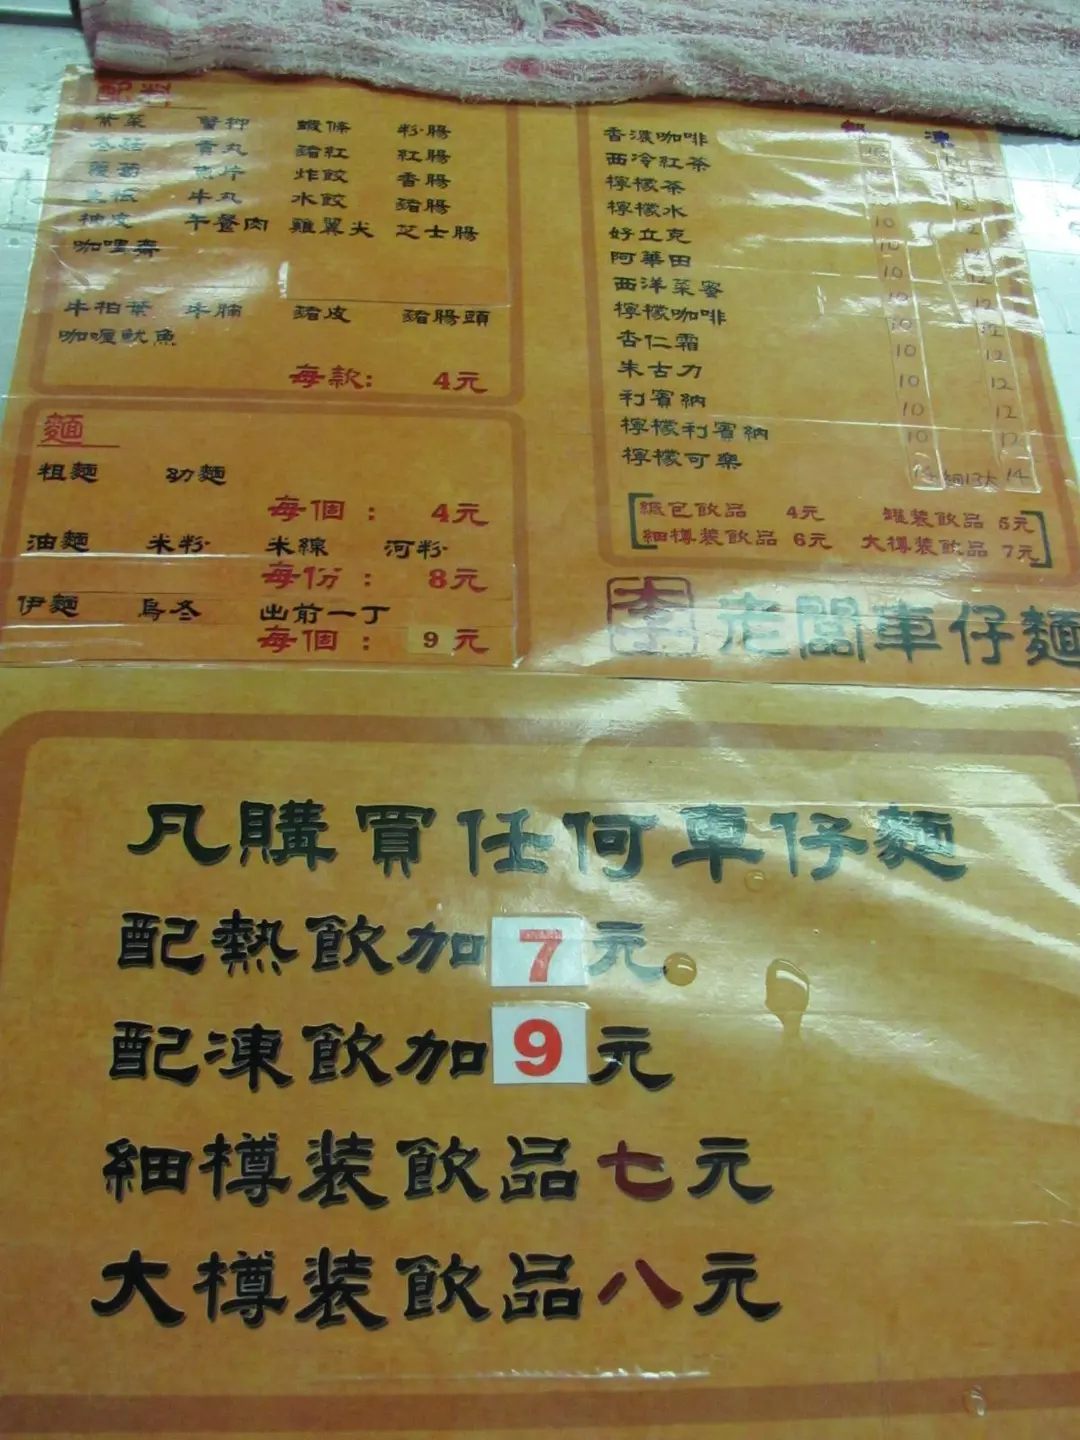 配料
紫菜 蟹柳 蝦條 粉腸
冬菇 貢丸 豬紅 紅腸
蘿蔔 魚片 炸餃 香腸
生根 牛丸 水餃 豬腸
枝皮 午餐肉 雞翼尖 芝士腸
咖哩齋
牛柏葉 牛腩 豬皮 豬腸頭
咖喱魷魚
每款: 4元
麵
粗麵 幼麵
每個: 4元
油麵 米粉 米線 河粉
每份: 8元
伊麵 烏冬 出前一丁
每個: 9元
熱 凍
香濃咖啡
西冷紅茶
檸檬茶 12
檸檬水 10 12
好立克 10 12
阿華田 10 12
西洋菜蜜 10 12
檸檬咖啡 10 12
杏仁霜 10 12
朱古力 10 12
利賓納 10 12
檸檬利賓納 10 12
檸檬可樂 14 細13大 14
紙包飲品 4元 罐裝飲品 5元
細樽裝飲品 6元 大樽裝飲品 7元
李 老闆車仔麵
凡購買任何車仔麵
配熱飲加7元
配凍飲加9元
細樽裝飲品七元
大樽裝飲品八元